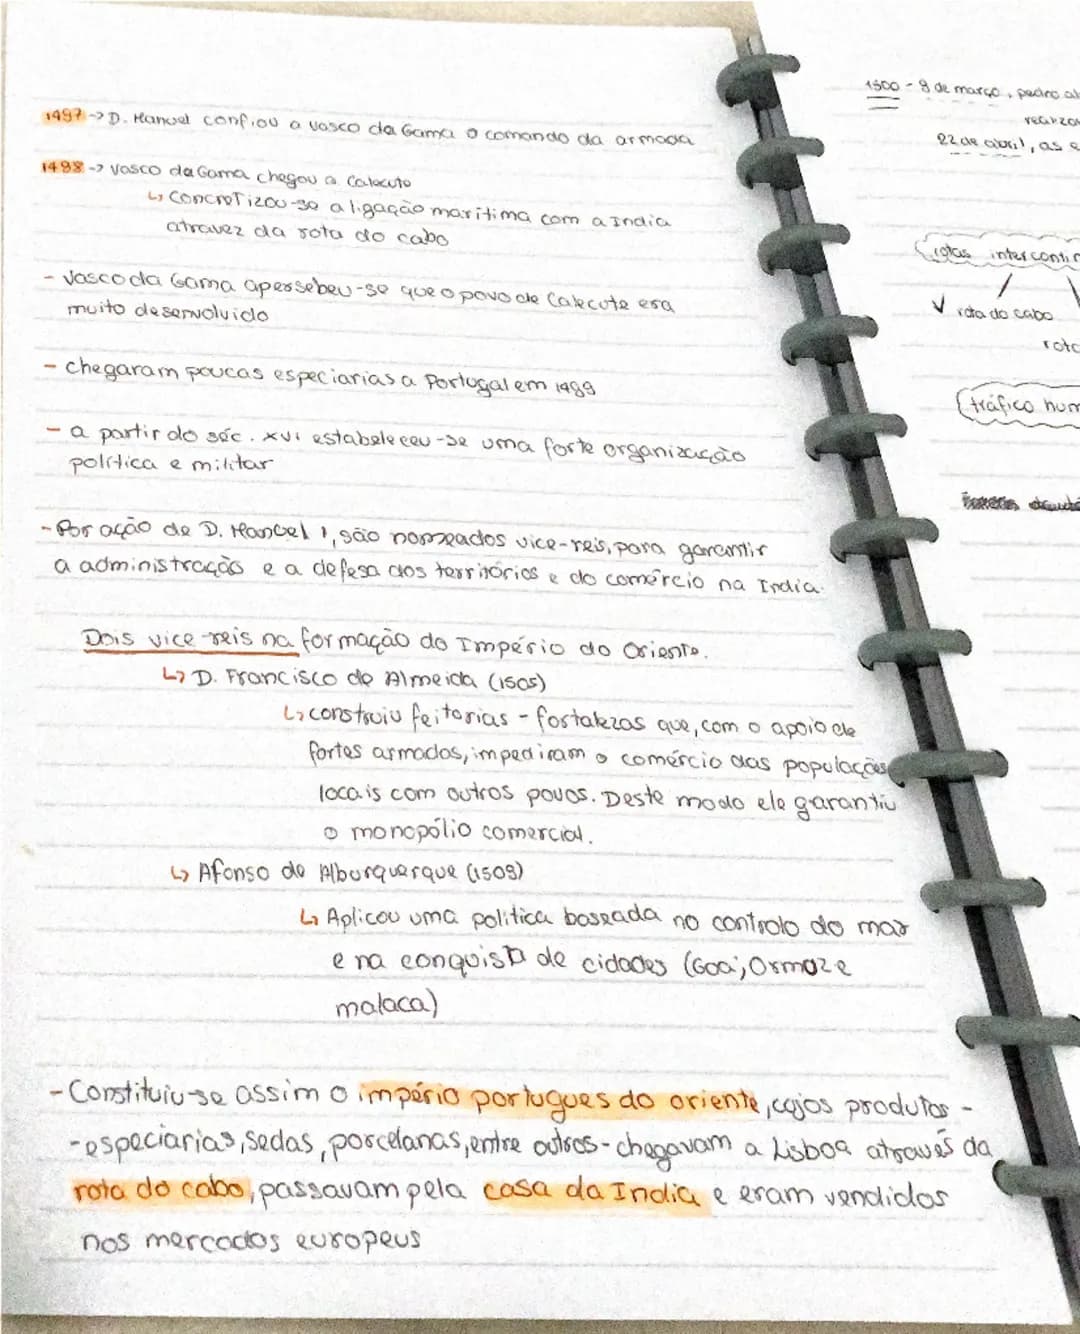 1497 -> D. Manuel confiou a vasco da Gama o comando da armada
1498 -> vasco da Gama chegou a Calecute
↳ Concretizou-se a ligação marítima com a India
atravez da rota do cabo
- Vasco da Gama apersebeu-se que o povo de Calecute era
muito desenvolvido
- chegaram poucas especiarias a Portugal em 1499
- a partir do séc. xvi estabeleceu-se uma forte organização
política e militar
- Por ação de D. Manuel I, são nomeados vice-reis, para garantir
a administração e a defesa dos territórios e do comércio na India.
Dois vice-reis na formação do Império do Oriente.
↳ D. Francisco de Almeida (1505)
↳ construiu feitorias - fortalezas que, com o apoio de
fortes armadas, impediram o comércio das populações
locais com outros povos. Deste modo ele garantiu
o monopólio comercial.
↳ Afonso de Alburquerque (1509)
↳ Aplicou uma politica baseada no controlo do mar
e na conquista de cidades (Goa, Ormuz e
malaca)
- Constituiu-se assim o império portugues do oriente, cujos produtos -
- especiarias, sedas, porcelanas, entre outros - chegavam a Lisboa através da
rota do cabo, passavam pela casa da India e eram vendidos
nos mercados europeus
1500 - 9 de março, pedro al
22 de abril, as e
rotas intercontin
✓ rota do cabo
rota
tráfico hum